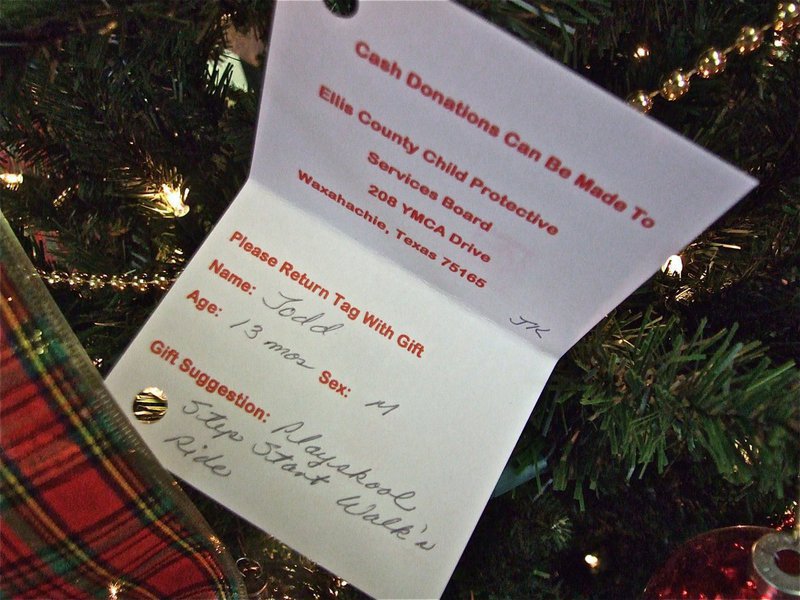 Cash Donations Can Be Made To
Ellis County Child Protective
Services Board
208 YMCA Drive
Waxahachie, Texas 75165
JK
Please Return Tag With Gift
Name: Todd
Age: 13 mos Sex: M
Gift Suggestion: Playskool
Step Start Walk'n
Ride